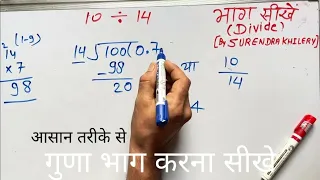 10 ÷ 14
भाग सीखें
(Divide)
[By SURENDRA KHILERY]
2 (1-9)
14
× 7
98
14 √100(0.7
- 98
20
या
10
14
4
आसान तरीके से
गुणा भाग करना सीखे